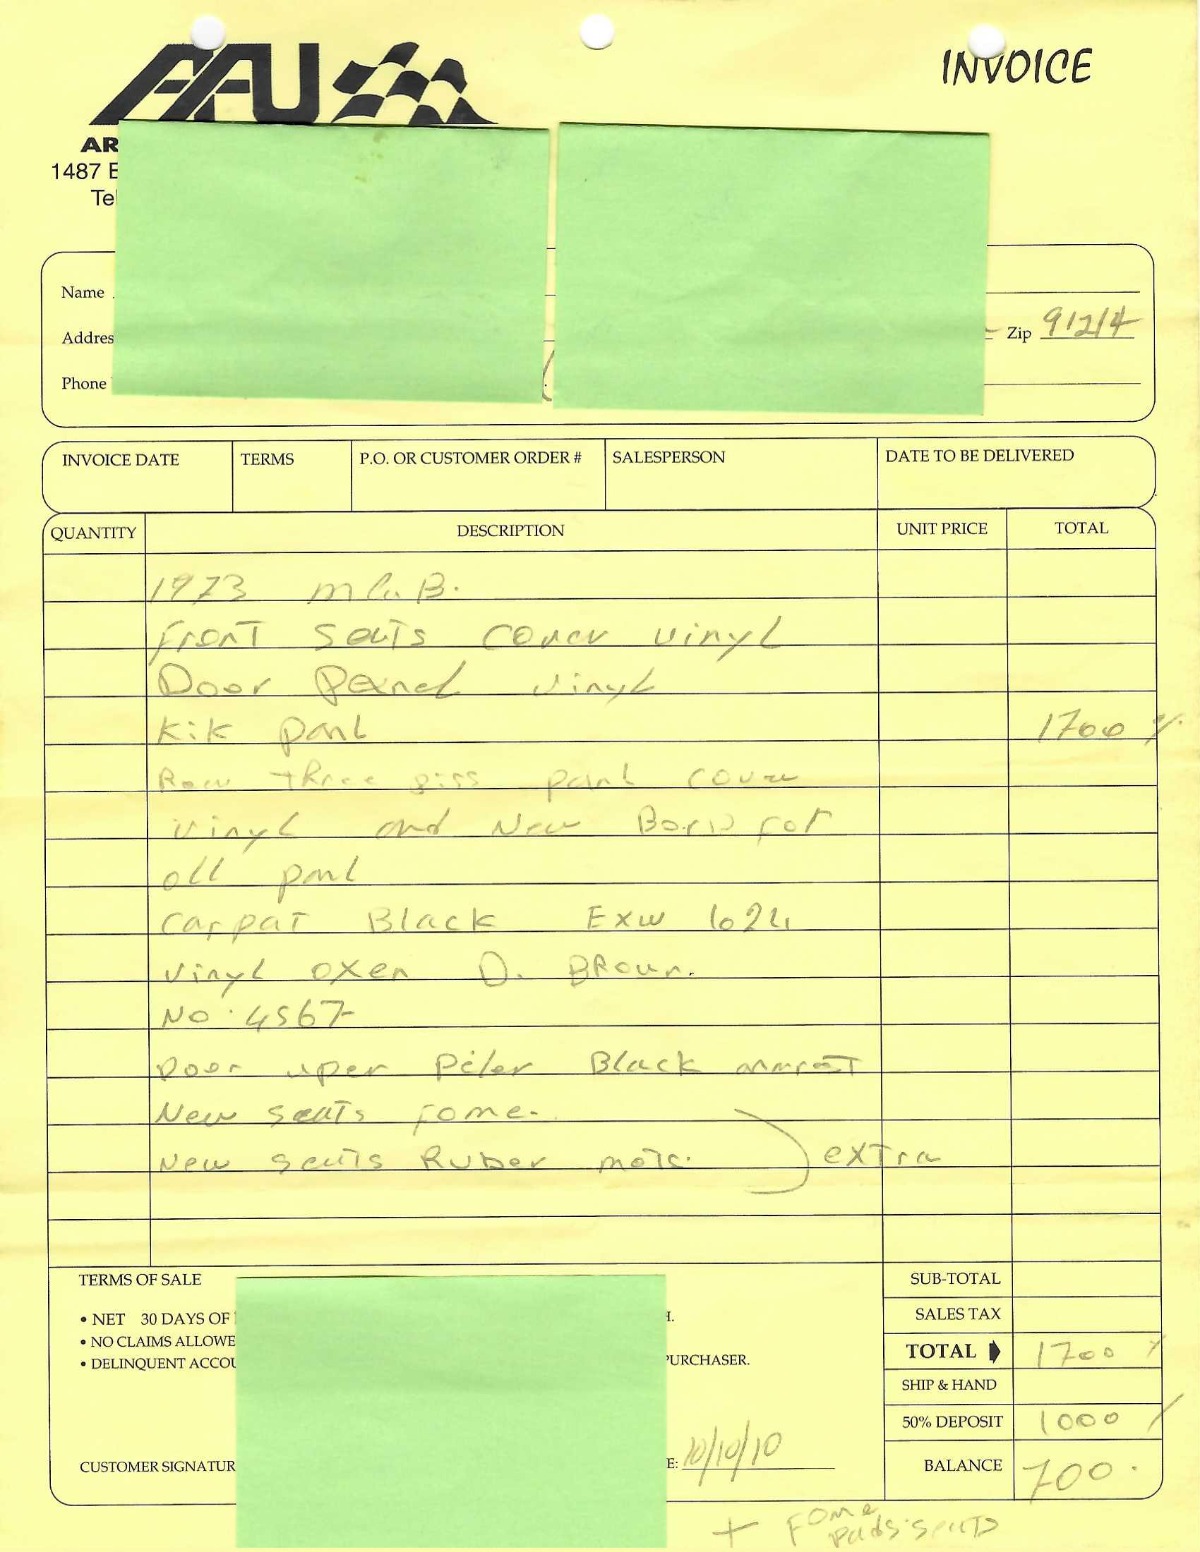 AFU
INVOICE
AR
1487 E
Te
Name
Addres
Zip 91214
Phone
INVOICE DATE TERMS P.O. OR CUSTOMER ORDER # SALESPERSON DATE TO BE DELIVERED
QUANTITY DESCRIPTION UNIT PRICE TOTAL
1973 M.G.B.
Front Seats Cover Vinyl
Door Panel Vinyl
Kik panl 1700
Row three piss panl cover
Vinyl and New Bord for
oll panl
Carpat Black Exw 1024
Vinyl oxen D. BROwn.
No. 4567
Door uper Piler Black
New seats fome.
New seats Ruber mats. extra
TERMS OF SALE
• NET 30 DAYS OF H.
• NO CLAIMS ALLOWE
• DELINQUENT ACCOU PURCHASER.
CUSTOMER SIGNATUR E: 10/10/10
SUB-TOTAL
SALES TAX
TOTAL 1700
SHIP & HAND
50% DEPOSIT 1000
BALANCE 700.
+ Fome
pads seats